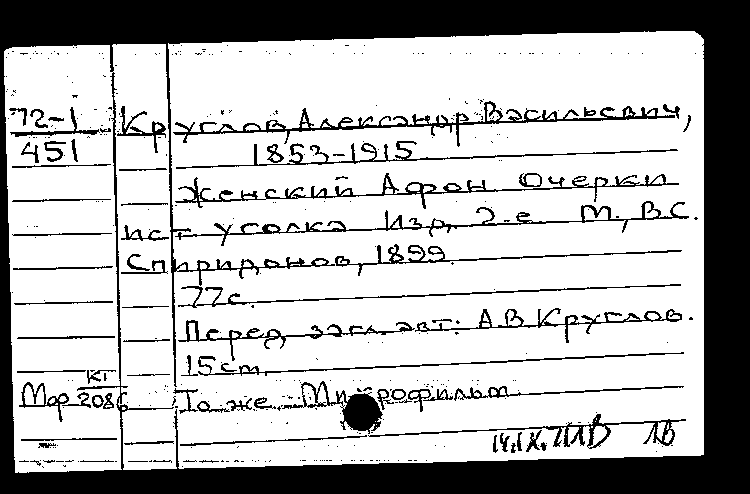 72-1 Круглов, Александр Васильевич,
451 1853-1915
Женский Афон Очерки
ист уголка Изд. 2-е М., В.С.
Спиридонов, 1899.
77с.
Перед загл. авт: А.В. Круглов.
15см.
К1
Мф 2086 То же Микрофильм
14.IX.71 1В